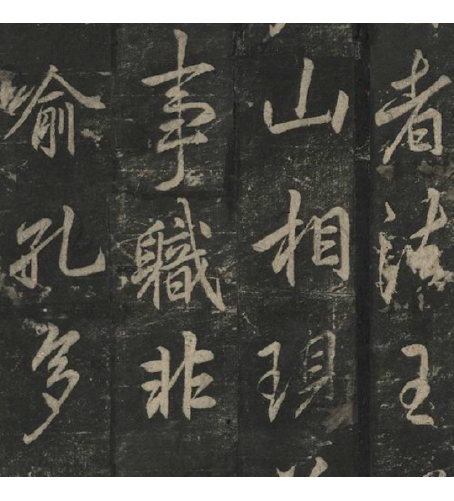 者法王
山相現
事軄非
喻孔多